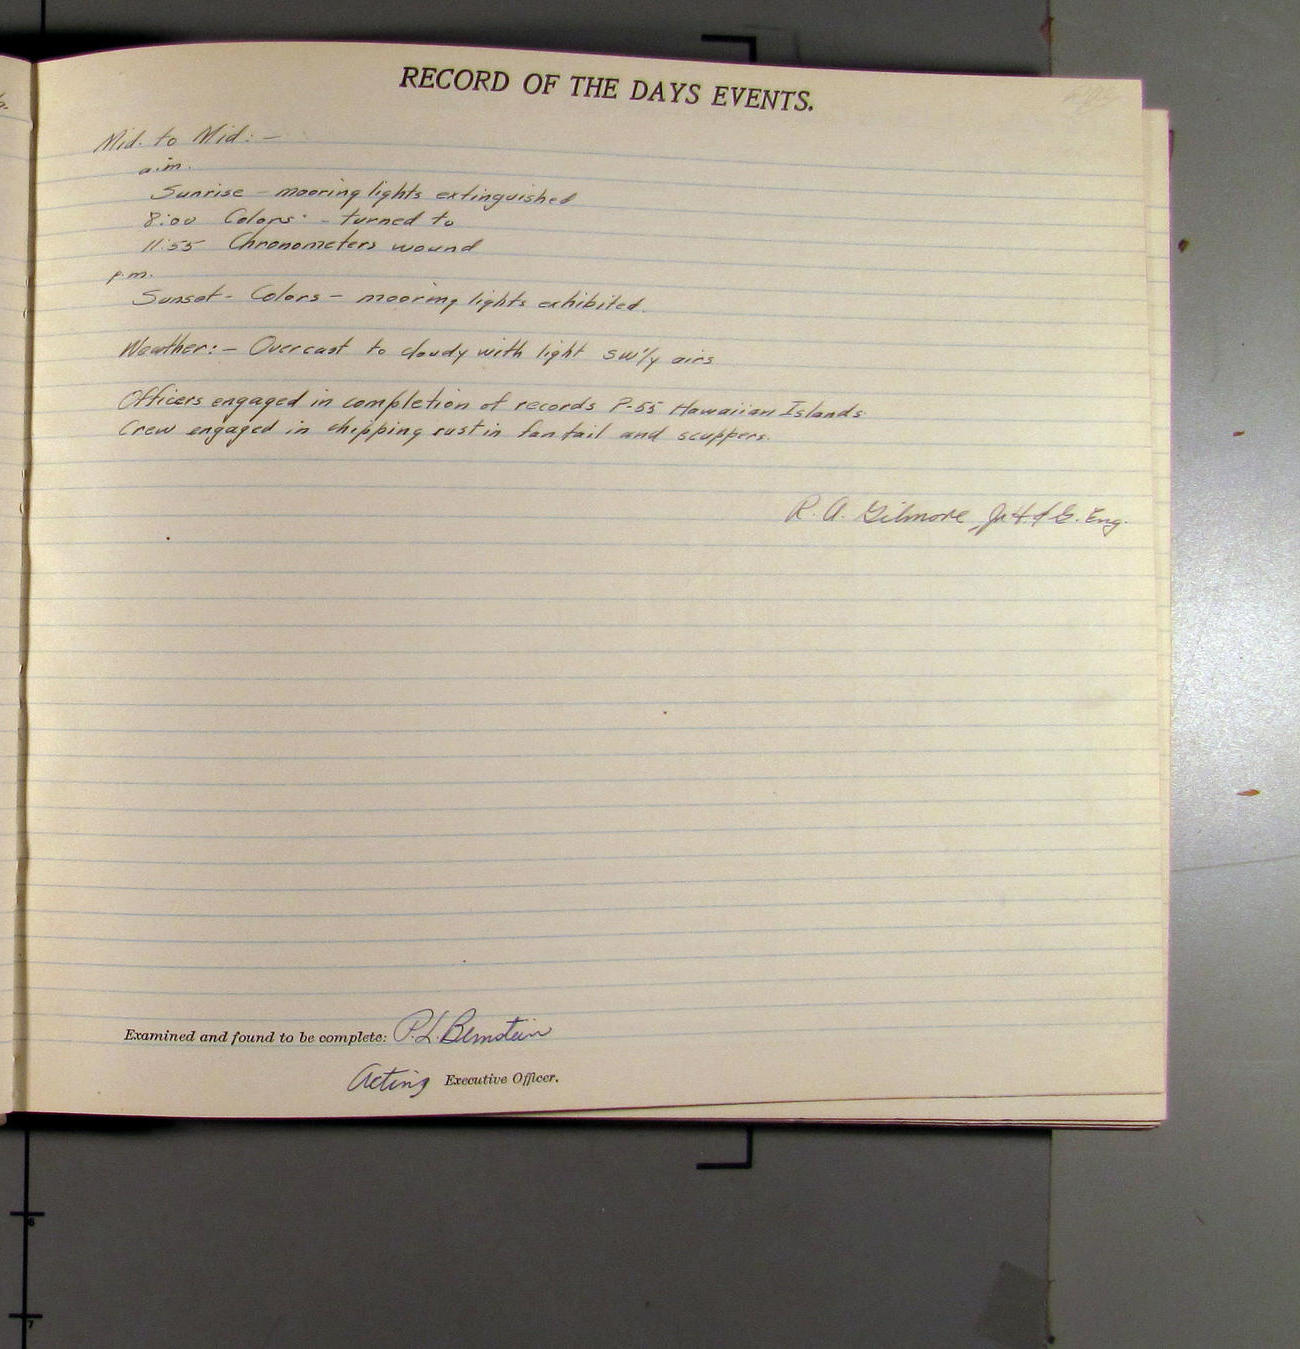 RECORD OF THE DAYS EVENTS.
Mid. to Mid: -
a.m.
Sunrise - mooring lights extinguished
8:00 Colors - turned to
11:55 Chronometers wound
p.m.
Sunset - Colors - mooring lights exhibited.
Weather: - Overcast to cloudy with light SW'ly airs
Officers engaged in completion of records P-55 Hawaiian Islands
Crew engaged in chipping rust in fantail and scuppers.
R. A. Gilmore Jr. H. & G. Eng.
Examined and found to be complete: P. L. Bernstein
Acting Executive Officer.
6
7